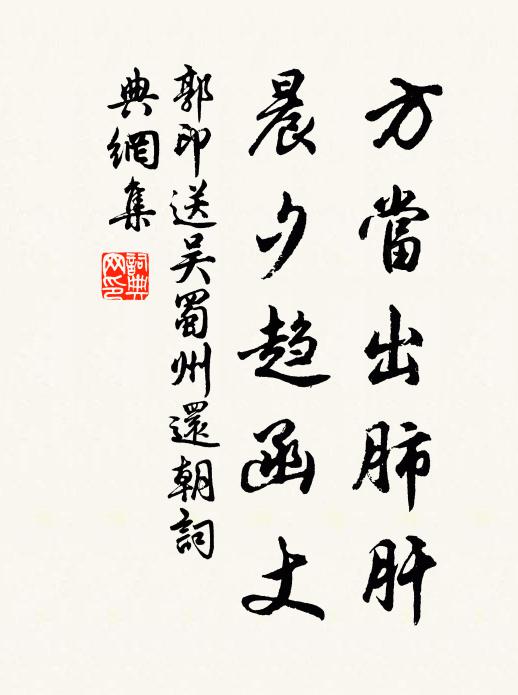 方當出肺肝
晨夕趋函丈
郭印送吴蜀州還朝詞
典網集
詞典網印